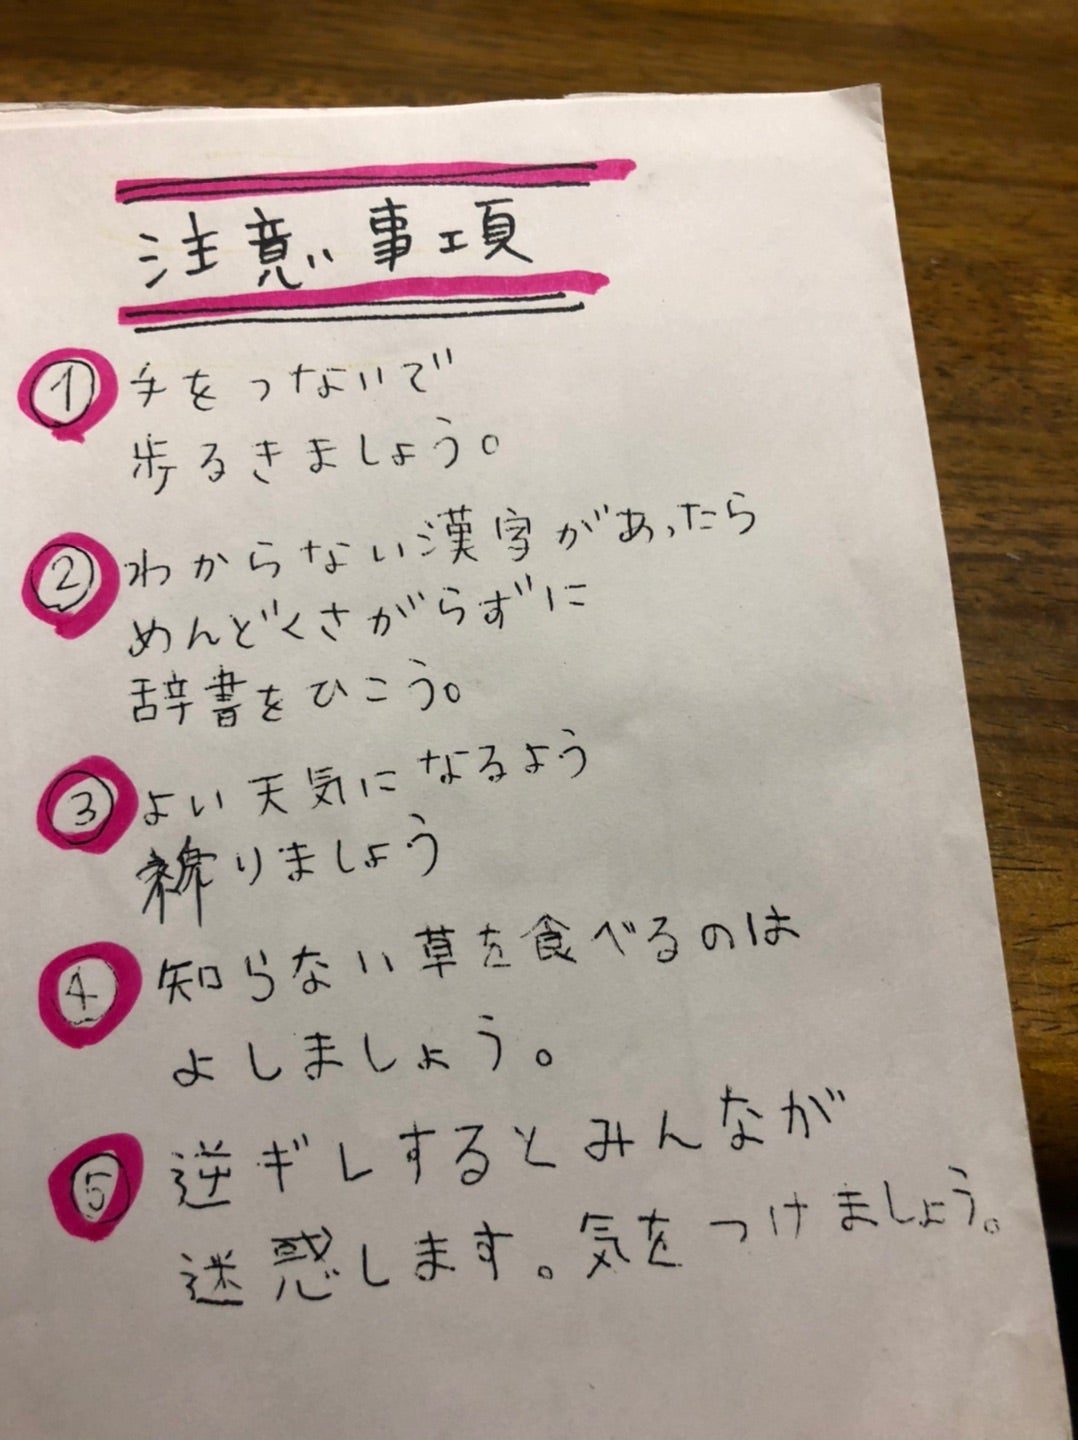 注意事項
① 手をつないで
歩るきましょう。
② わからない漢字があったら
めんどくさがらずに
辞書をひこう。
③ よい天気になるよう
祈りましょう
④ 知らない草を食べるのは
よしましょう。
⑤ 逆ギレするとみんなが
迷惑します。気をつけましょう。